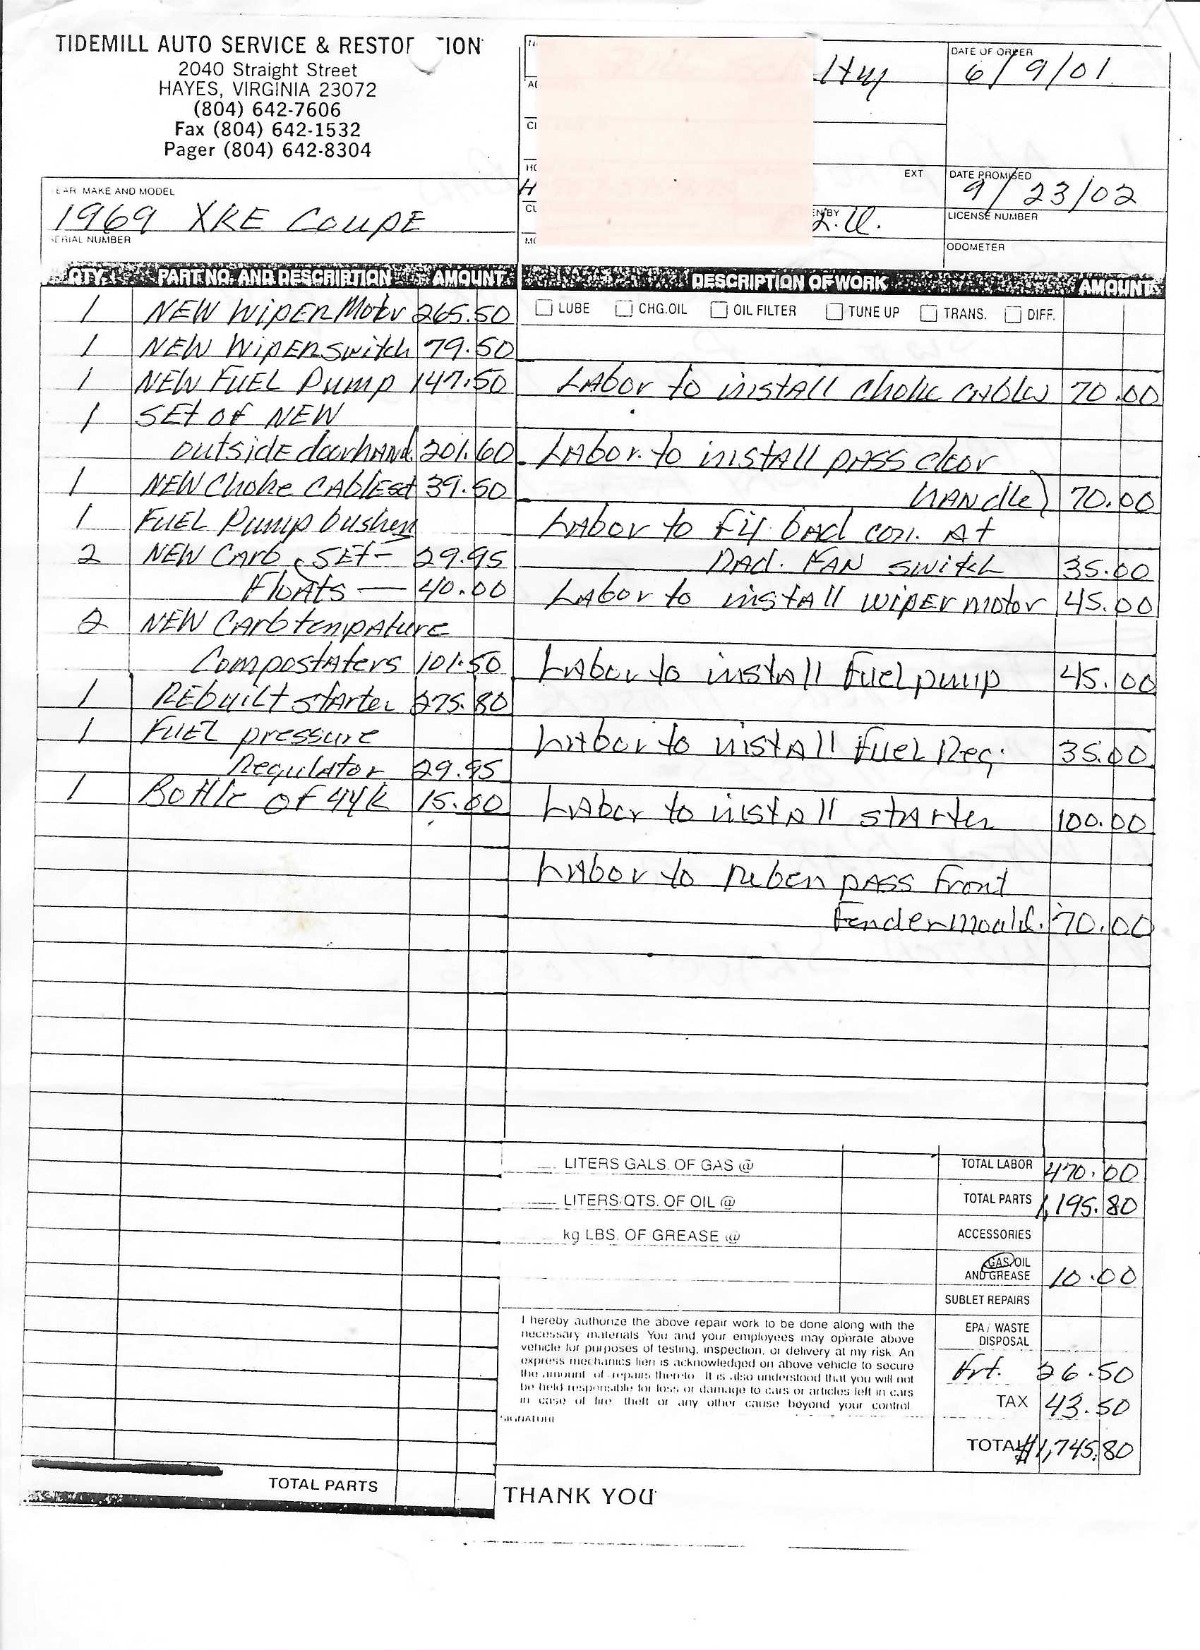 TIDEMILL AUTO SERVICE & RESTOR TION
2040 Straight Street
HAYES, VIRGINIA 23072
(804) 642-7606
Fax (804) 642-1532
Pager (804) 642-8304
DATE OF ORDER
6/9/01
EXT
DATE PROMISED
9/23/02
LICENSE NUMBER
ODOMETER
EAR MAKE AND MODEL
1969 XKE COUPE
SERIAL NUMBER
QTY. PART NO. AND DESCRIPTION AMOUNT
1 NEW WiPER Motor 265.50
1 NEW WiPER switch 79.50
1 NEW FUEL Pump 147.50
1 SET OF NEW
outside doorhand. 201.60
1 NEW Choke CABLE set 39.50
1 FUEL Pump bushen
2 NEW Carb. SET- 29.95
Floats — 40.00
2 NEW Carb tempature
Compostaters 101.50
1 REBuilt starter 275.80
1 FUEL pressure
Regulator 29.95
1 Bottle of 44k 15.00
TOTAL PARTS
DESCRIPTION OF WORK AMOUNT
LUBE CHG.OIL OIL FILTER TUNE UP TRANS. DIFF.
LAbor to install choke cables 70.00
LAbor to install pass door
handle) 70.00
LAbor to fix bad con. At
Rad. FAN switch 35.00
LAbor to install wiper motor 45.00
LAbor to install fuel pump 45.00
LAbor to install fuel Reg. 35.00
LAbor to install starter 100.00
LAbor to pass front
Fender mould. 70.00
LITERS GALS. OF GAS @
LITERS QTS. OF OIL @
kg LBS. OF GREASE @
TOTAL LABOR 470.00
TOTAL PARTS 1,195.80
ACCESSORIES
GAS/OIL
AND GREASE 10.00
SUBLET REPAIRS
EPA / WASTE
DISPOSAL
Frt. 26.50
TAX 43.50
TOTAL $1,745.80
I hereby authorize the above repair work to be done along with the
necessary materials You and your employees may operate above
vehicle for purposes of testing, inspection, or delivery at my risk. An
express mechanics lien is acknowledged on above vehicle to secure
the amount of repairs thereto. It is also understood that you will not
be held responsible for loss or damage to cars or articles left in cars
in case of fire theft or any other cause beyond your control
SIGNATURE
THANK YOU